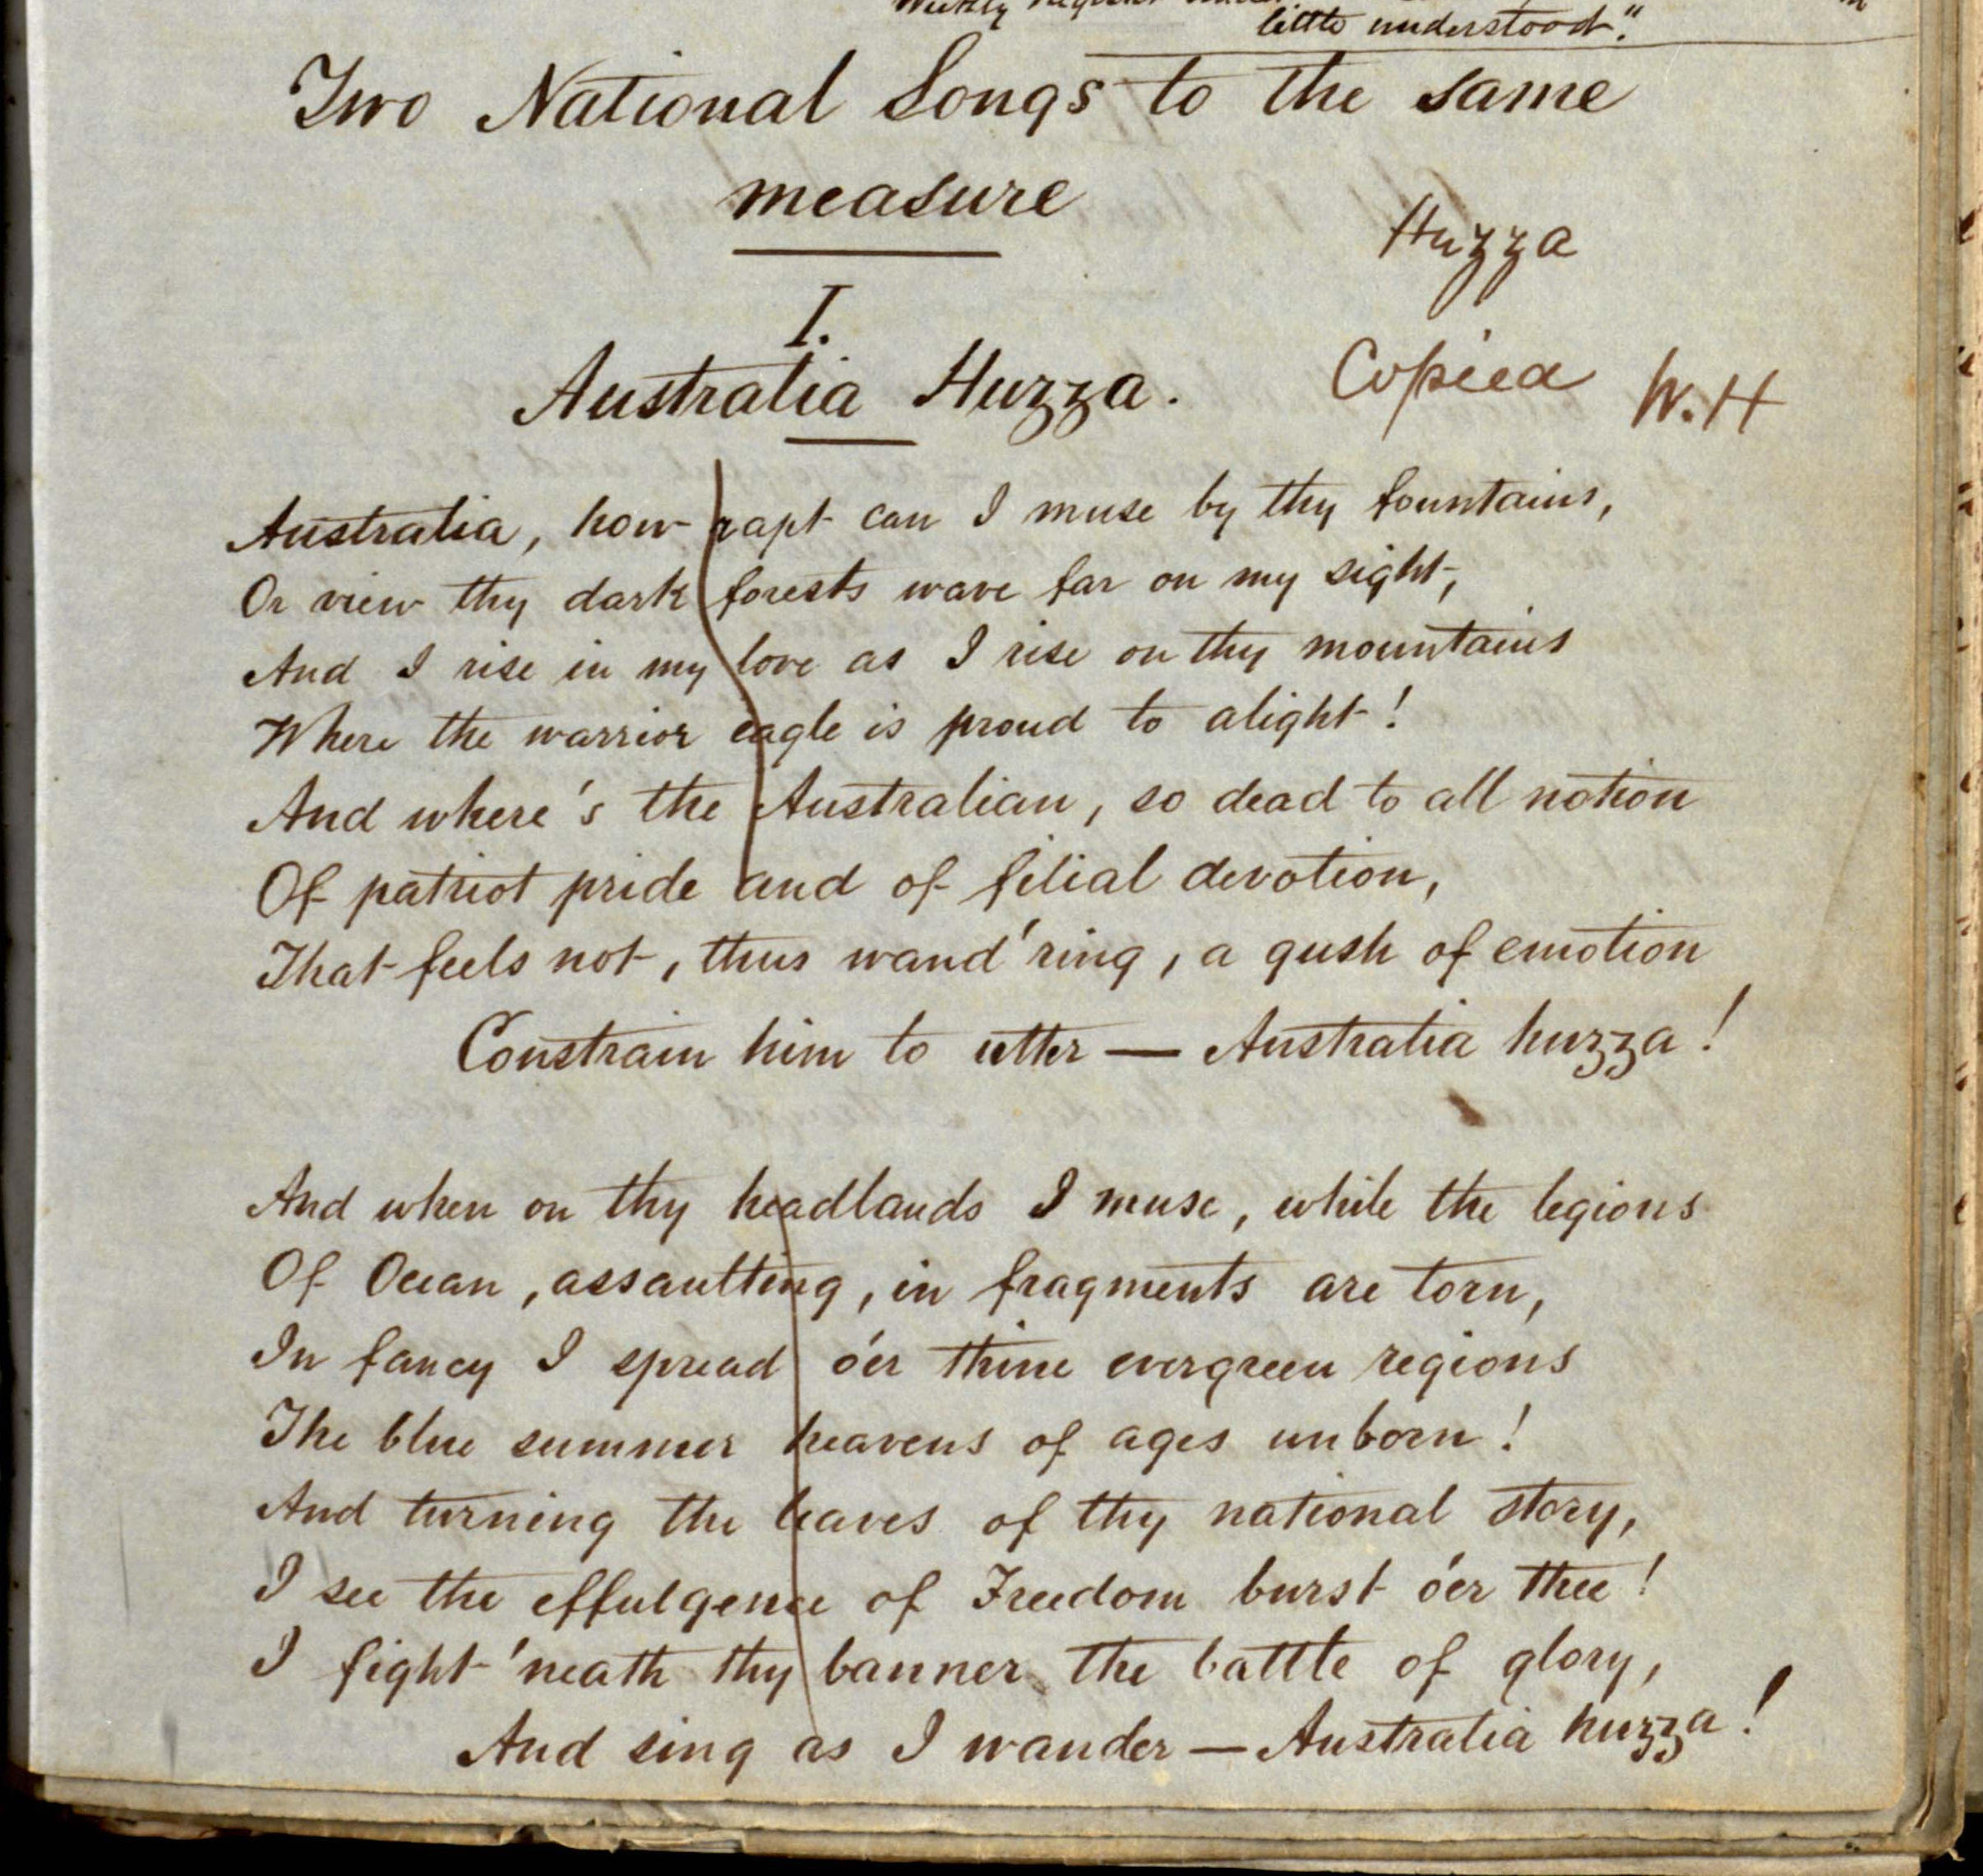 Weekly Register
little understood".
Two National Songs to the same
measure
Huzza
I.
Australia Huzza. Copied W. H
Australia, how rapt can I muse by thy fountains,
Or view thy dark forests wave far on my sight,
And I rise in my love as I rise on thy mountains
Where the warrior eagle is proud to alight!
And where's the Australian, so dead to all notion
Of patriot pride and of filial devotion,
That feels not, thus wand'ring, a gush of emotion
Constrain him to utter — Australia huzza!
And when on thy headlands I muse, while the legions
Of Ocean, assaulting, in fragments are torn,
In fancy I spread o'er thine evergreen regions
The blue summer heavens of ages unborn!
And turning the leaves of thy national story,
I see the effulgence of Freedom burst o'er thee!
I fight 'neath thy banner the battle of glory,
And sing as I wander — Australia huzza!